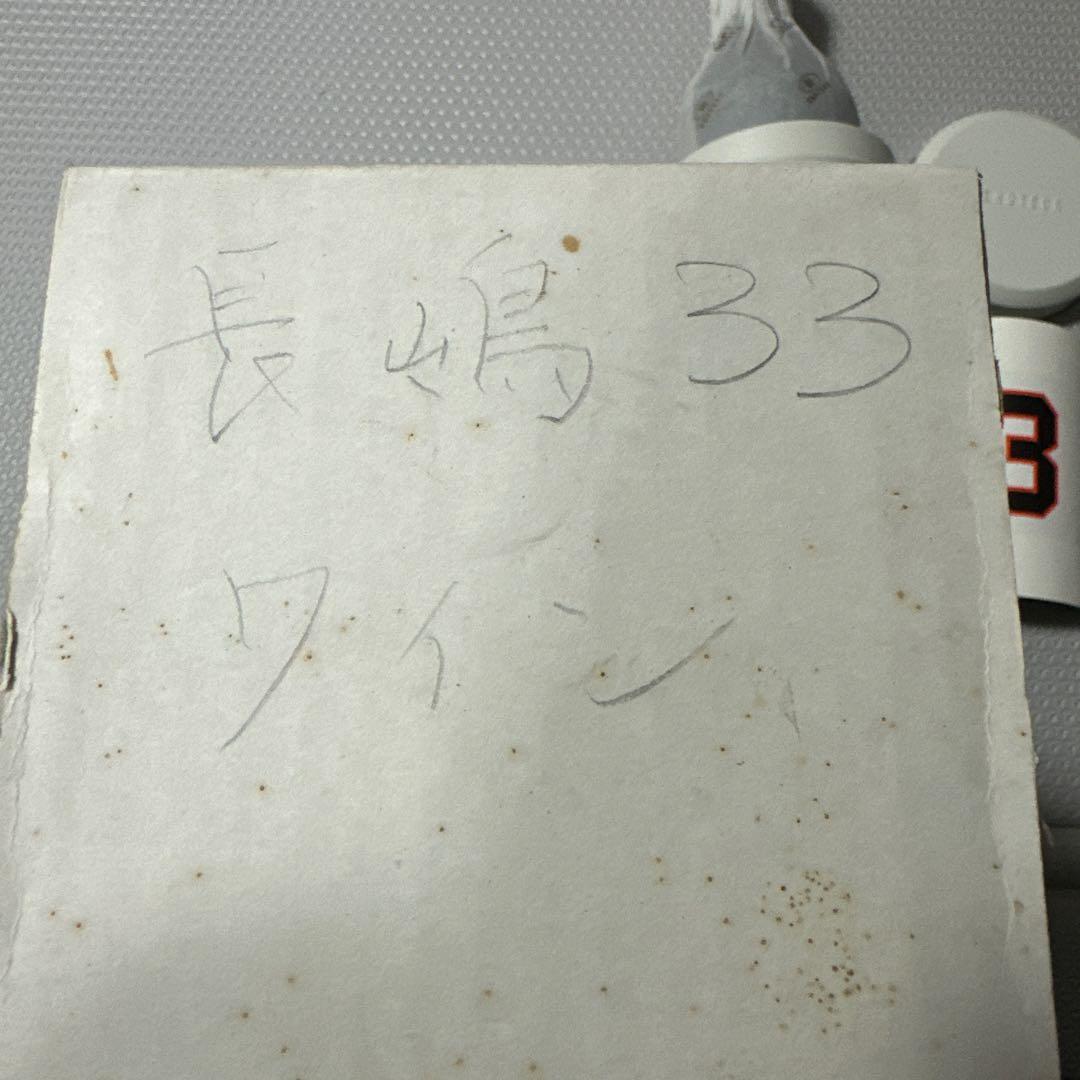 長嶋33
ワイン
3